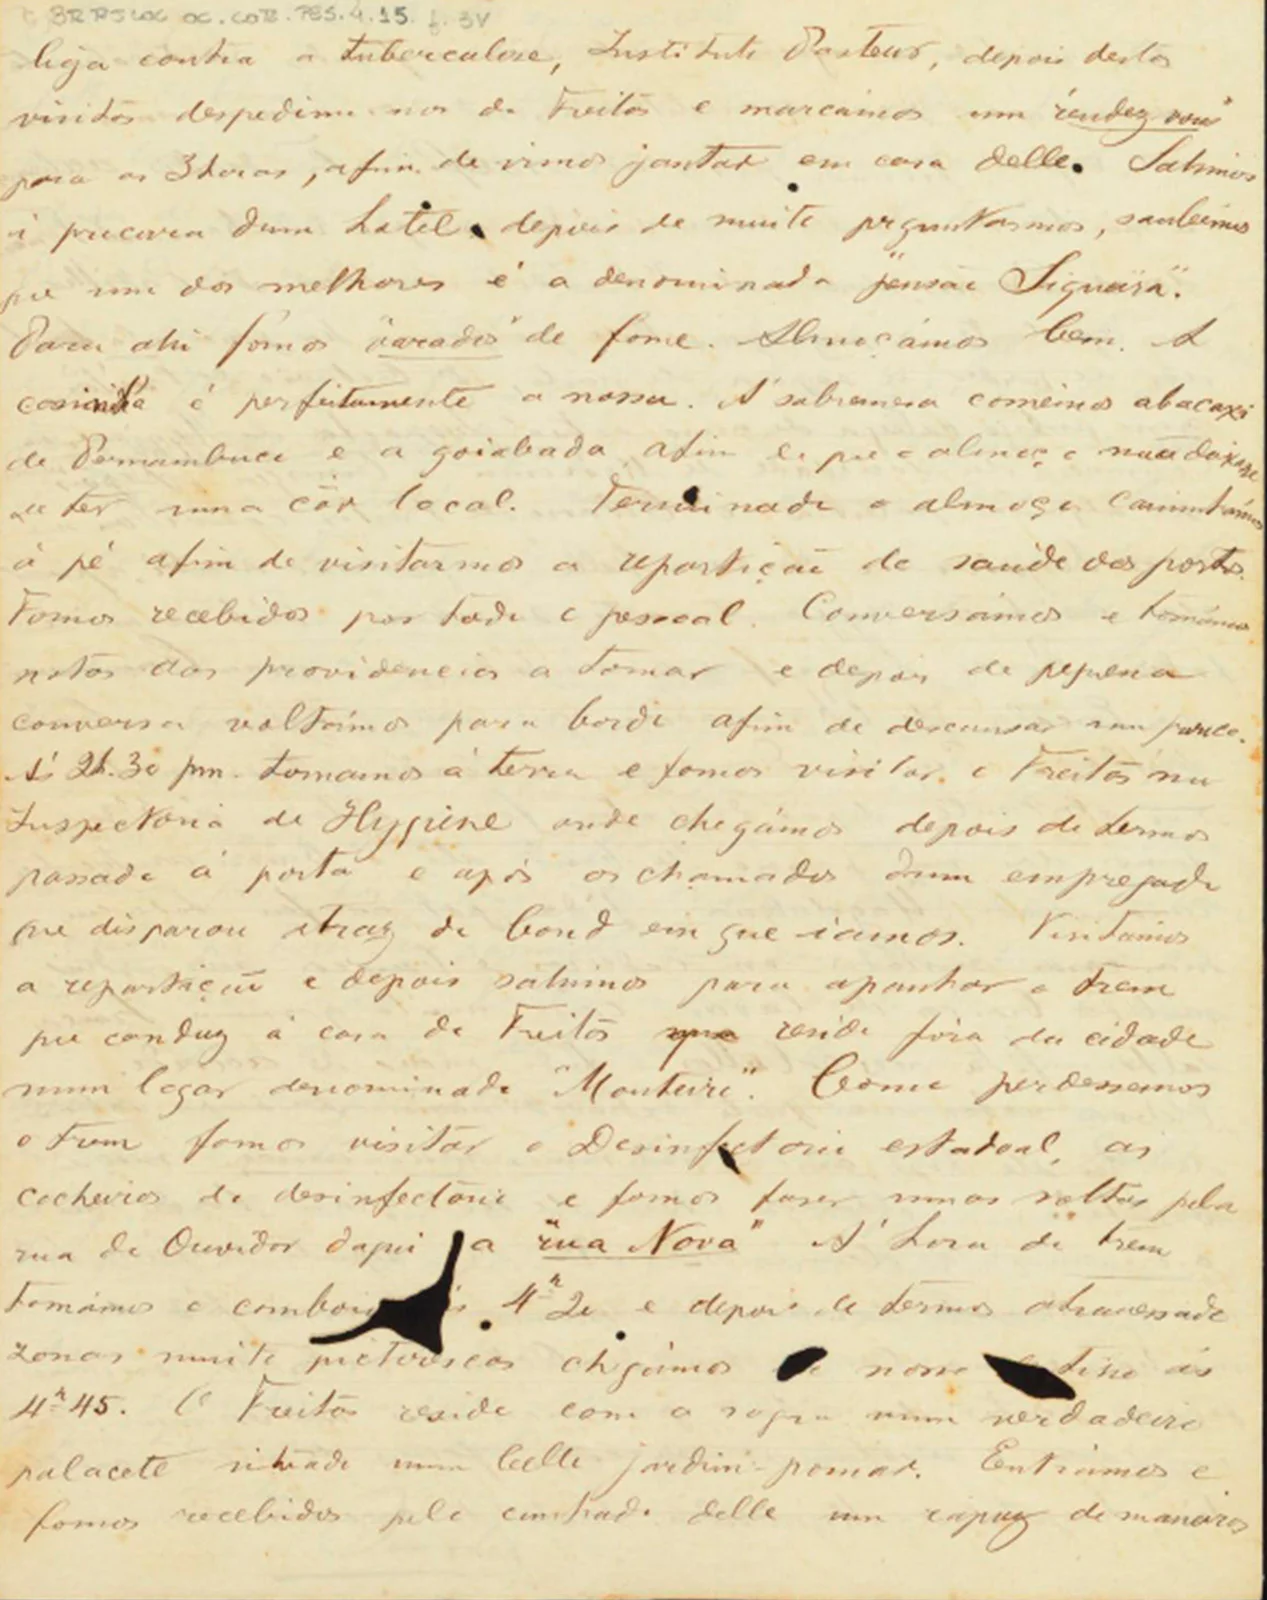 BR RJCOC OC.COR.PES.4.15. f. 3V
liga contra a tuberculose, Instituto Pasteur, depois destas
visitas despedimo nos do Freitas e marcámos um "rendez vous"
para as 3 horas, afim de irmos jantar em casa delle. Sahimos
á procura dum hotel, depois de muito perguntarmos, soubemos
que um dos melhores é a denominada "pensão Siqueira".
Para ahi fomos "varados" de fome. Almoçámos bem. A
cosinha é perfeitamente a nossa. Á sobremesa comemos abacaxi
de Pernambuco e a goiabada afim de que o almoço não deixasse
de ter uma côr local. Terminado o almoço caminhámos
á pé afim de visitarmos a repartição de saúde dos portos.
Fomos recebidos por todo o pessoal. Conversámos e tomámos
notas das providencias a tomar e depois de pequena
conversa voltámos para bordo afim de descansar um pouco.
Ás 2h.30 pm. tornamos á terra e fomos visitar o Freitas na
Inspectoria de Hygiene onde chegámos depois de termos
passado á porta e após os chamados dum empregado
que disparou atraz do bond em que iamos. Visitámos
a repartição e depois sahimos para apanhar o trem
que conduz á casa do Freitas que reside fóra da cidade
num logar denominado "Monteiro". Como perdessemos
o trem fomos visitar o Desinfectorio estadoal, as
cocheiras do desinfectorio e fomos fazer umas voltas pela
rua do Ouvidor daqui a "rua Nova" Á hora do trem
tomámos o comboio ás 4h 20 e depois de termos atravessado
zonas muito pictorescas chegámos ao nosso destino ás
4h 45. O Freitas reside com a sogra num verdadeiro
palacete situado num bello jardim-pomar. Entrámos e
fomos recebidos pelo cunhado delle um rapaz de maneiras